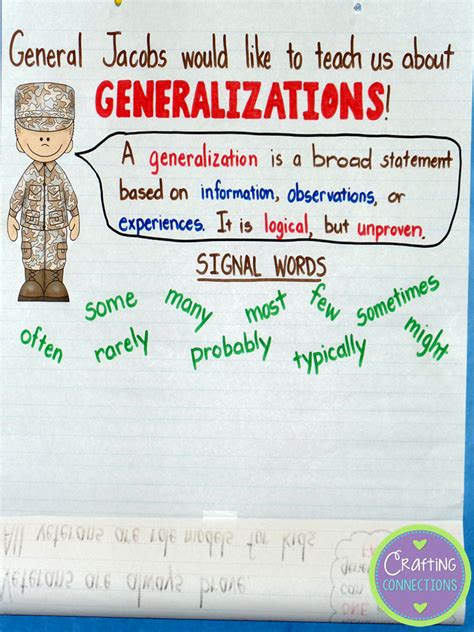 General Jacobs would like to teach us about
GENERALIZATIONS!
A generalization is a broad statement
based on information, observations, or
experiences. It is logical, but unproven.
SIGNAL WORDS
some many most few sometimes
often rarely probably typically might
All veterans are role models for kids.
Veterans are always brave.
Crafting
CONNECTIONS